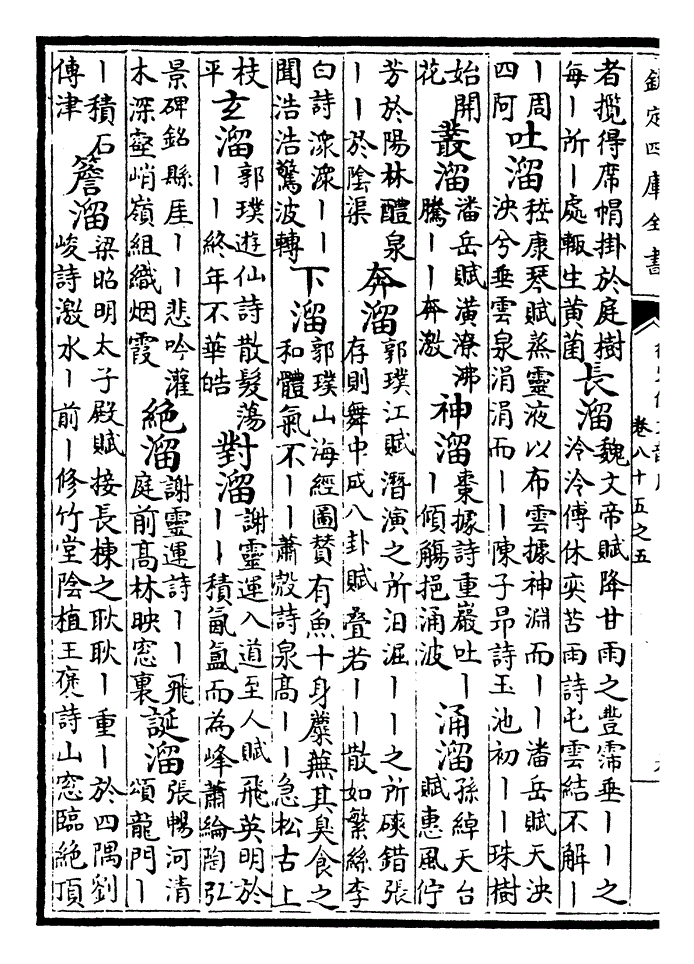 欽定四庫全書
卷八十五之五
者攬得席帽掛於庭樹
每｜所｜處輙生黄菌
長溜
魏文帝賦降甘雨之豐霈垂｜｜之
泠泠傅休奕苦雨詩屯雲結不解｜
｜周
四阿
吐溜
嵇康琴賦蒸靈液以布雲據神淵而｜｜潘岳賦天泱
泱兮垂雲泉涓涓而｜｜陳子昻詩玉池初｜｜珠樹
始開
花
叢溜
潘岳賦潢潦沸
騰｜｜奔激
神溜
棗據詩重巖吐｜
｜傾觴挹涌波
涌溜
孫綽天台
賦惠風佇
芳於陽林醴泉
｜｜於陰渠
奔溜
郭璞江賦潛演之所汨淈｜｜之所磢錯張
存則舞中成八卦賦叠若｜｜散如繁絲李
白詩潨潨｜｜
聞浩浩驚波轉
下溜
郭璞山海經圖贊有魚十身蘪蕪其臭食之
和體氣不｜｜蕭愨詩泉髙｜｜急松古上
枝
平
玄溜
郭璞遊仙詩散髮蕩
｜｜終年不華皓
對溜
謝靈運入道至人賦飛英明於
｜｜積氤氲而為峰蕭綸陶弘
景碑銘縣厓｜｜悲吟灌
木深壑峭嶺組織烟霞
絶溜
謝靈運詩｜｜飛
庭前髙林映窓裏
誕溜
張暢河清
頌龍門｜
｜積石
傳津
簷溜
梁昭明太子殿賦接長棟之耿耿｜重｜於四隅劉
峻詩激水｜前｜修竹堂陰植王褒詩山窓臨絶頂